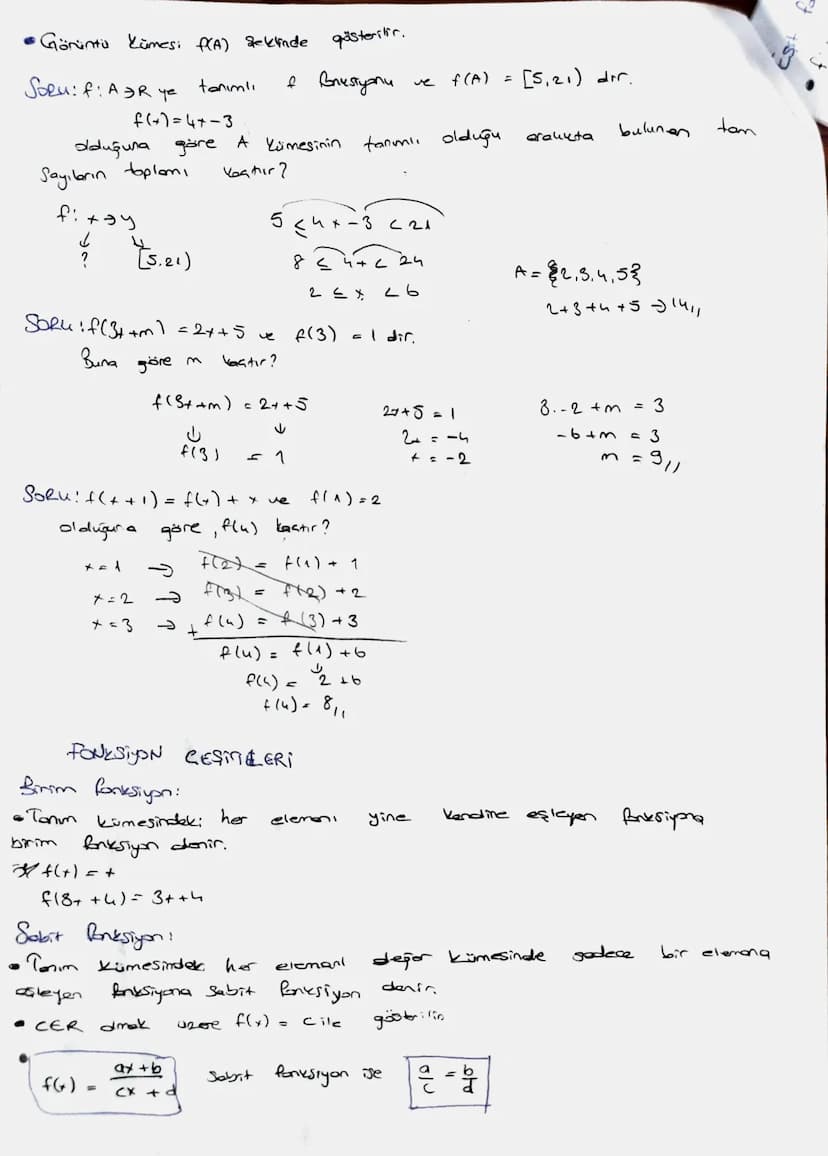 • Görüntü kümesi f(A) şeklinde gösterilir.
Soru: f: A→R ye tanımlı f fonksiyonu ve f(A) = [5,21) dir.
f(x)=4x-3
olduğuna göre A kümesinin tanımlı olduğu aralıkta bulunan tam
sayıların toplamı kaçtır?
f: x→y
? [5,21)
5 ≤ 4x-3 < 21
8 ≤ 4x < 24
2 ≤ x < 6
A = {2,3,4,5}
2+3+4+5 → 14//
Soru: f(3x+m) = 2x+5 ve f(3) = 1 dir.
Buna göre m kaçtır?
f(3x+m) = 2x+5
↓ ↓
f(3) = 1
2x+5 = 1
2x = -4
x = -2
3.-2 +m = 3
-6+m = 3
m = 9//
Soru: f(x+1) = f(x) + x ve f(1)=2
olduğuna göre, f(4) kaçtır?
x=1 → f(2) = f(1) + 1
x=2 → f(3) = f(2) +2
x=3 → + f(4) = f(3) +3
f(4) = f(1) +6
f(4) = 2 +6
f(4) = 8//
FONKSİYON ÇEŞİTLERİ
Birim fonksiyon:
• Tanım kümesindeki her elemanı yine kendine eşleyen fonksiyona
birim fonksiyon denir.
* f(x) = x
f(3x +4) = 3x+4
Sabit fonksiyon:
• Tanım kümesindeki her elemanı değer kümesinde sadece bir elemana
eşleyen fonksiyona sabit fonksiyon denir.
• CER olmak üzere f(x) = c ile gösterilir
• f(x) = ax+b / cx+d sabit fonksiyon ise a/c = b/d